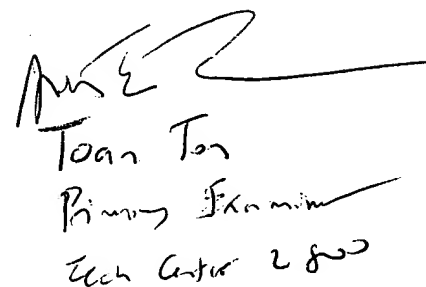 Toan Ton
Primary Examiner
Tech Center 2800